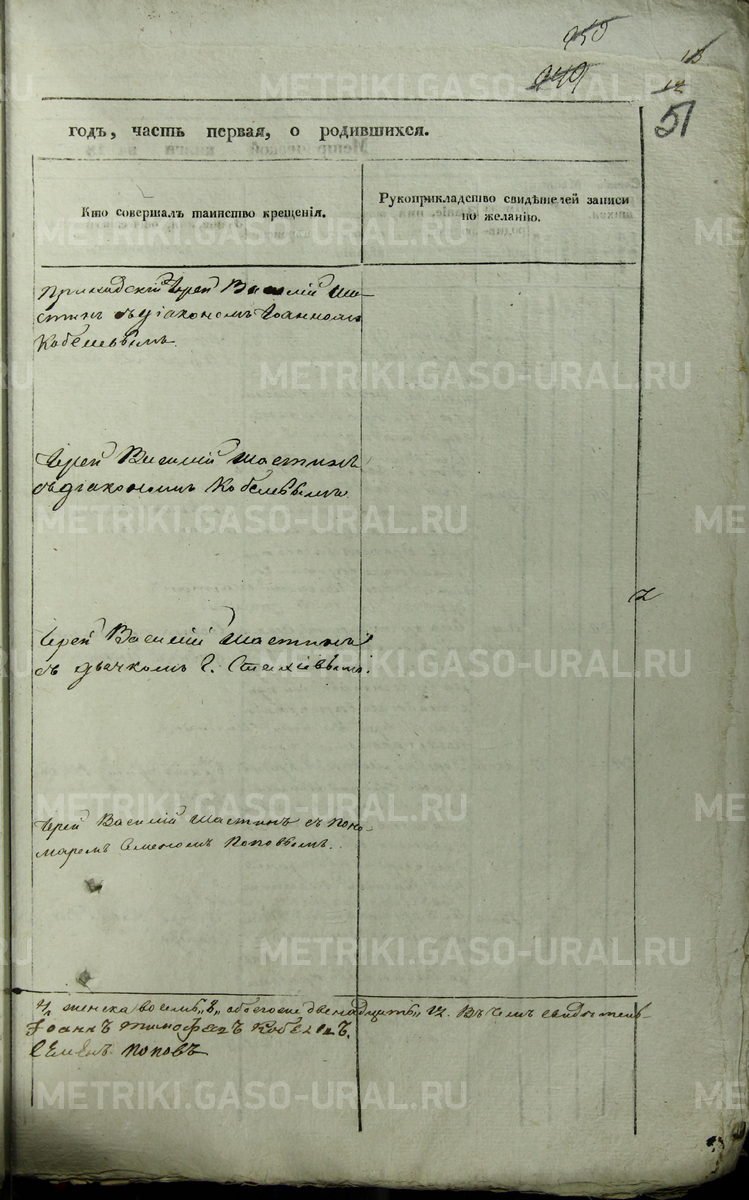 950
949
51
годъ, часть первая, о родившихся.
Кто совершалъ таинство крещенія.
Рукоприкладство свидѣтелей записи
по желанію.
Приходскій Іерей Василій Ша-
стинъ съ діакономъ Іоанномъ
Кобелевымъ.
Іерей Василій Шастинъ
съ діакономъ Кобелевымъ.
Іерей Василій Шастинъ
съ дьячкомъ
Іерей Василій Шастинъ съ Поно-
маремъ Семеномъ Поповымъ.
женска восемь „8„ обоего двенадцать „12. Въ чемъ свидѣтель-
Іоаннъ Кобелевъ.
Семенъ Поповъ
METRIKI.GASO-URAL.RU